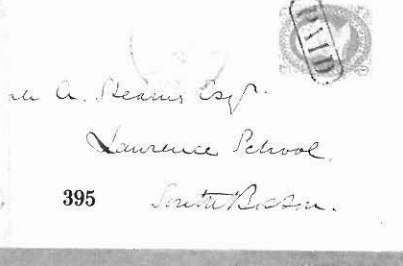 PAID
A. Stearns Esqr.
Lawrence School,
395
South Boston.